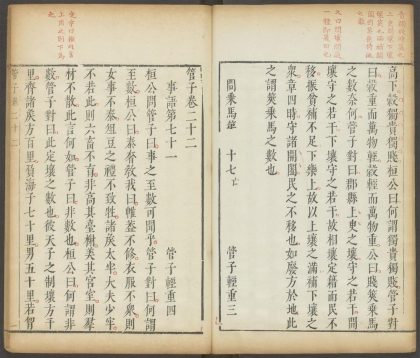 高下穀獨貴獨賤桓公曰何謂獨貴獨賤管子對
曰穀重而萬物輕穀輕而萬物重公曰賤筴乘馬
之數柰何管子對曰郡縣上臾之壤守之若干閒
壤守之若干下壤守之若干故相壤定籍而民不
移振貧補不足下樂上故以上壤之滿補下壤之
衆章四時守諸開闔民之不移也如廢方於地此
之謂筴乘馬之數也
問乘馬第十七亡
管子輕重三
管子卷二十二
事語第七十一
管子輕重四
桓公問管子曰事之至數可聞乎管子對曰何謂
至數桓公曰秦奢教我曰帷蓋不修衣服不衆則
女事不泰俎豆之禮不致牲諸矦太牢大夫少牢
不若此則六畜不育非高其臺榭美其宮室則羣
材不散此言何如管子曰非數也桓公曰何謂非
數管子對曰此定壤之數也彼天子之制壤方千
里齊諸矦方百里負海子七十里男五十里若胷
管子卷二十二